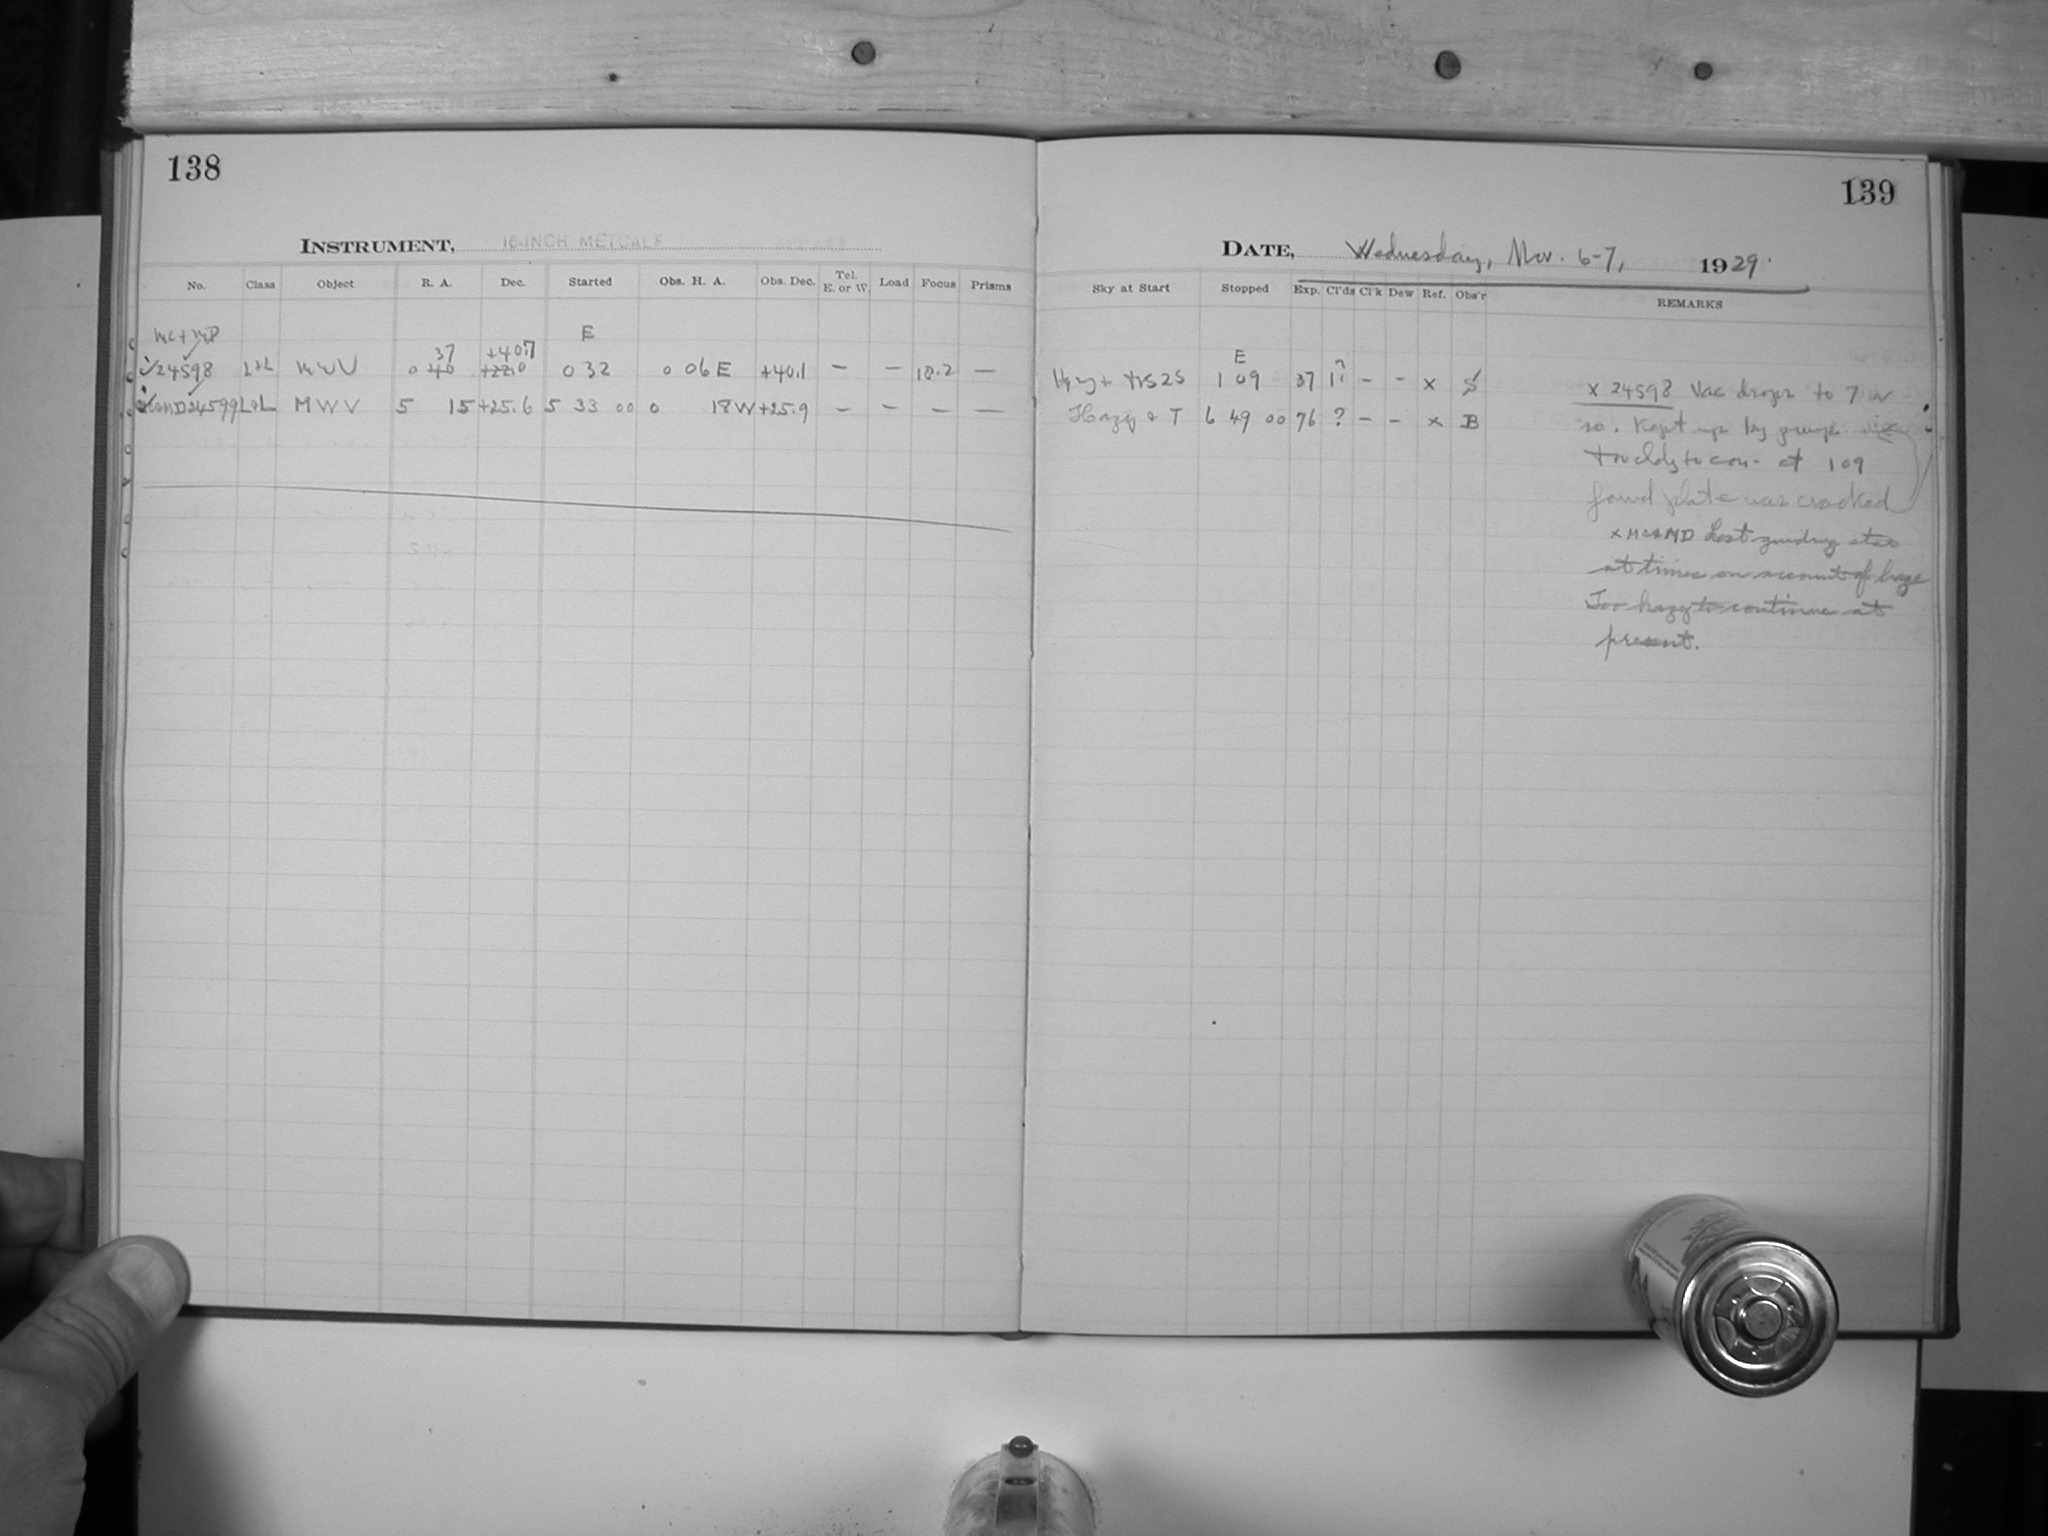 138
INSTRUMENT, 16-INCH METCALF
No. Class Object R. A. Dec. Started Obs. H. A. Obs. Dec. Tel. E. or W. Load Focus Prisms
MC + MD 37 +40.7 E
24598 L+L MWV 0 40 +22.0 0 32 0 06 E +40.1 — — 10.2 —
24599 L&L MWV 5 15 +25.6 5 33 00 0 18W +25.9 — — — —
139
DATE, Wednesday, Nov. 6-7, 1929.
Sky at Start Stopped Exp. Cl'ds Cl'k Dew Ref. Obs'r REMARKS
E
1 09 37 1? — — x S
Hazy & T 6 49 00 76 ? — — x B
x 24598 Vac drops to 7 or
so. Kept up by pump.
Too cldy to con. at 109
found plate was cracked
x MC&MD Lost guiding star
at times on account of haze
Too hazy to continue at
present.